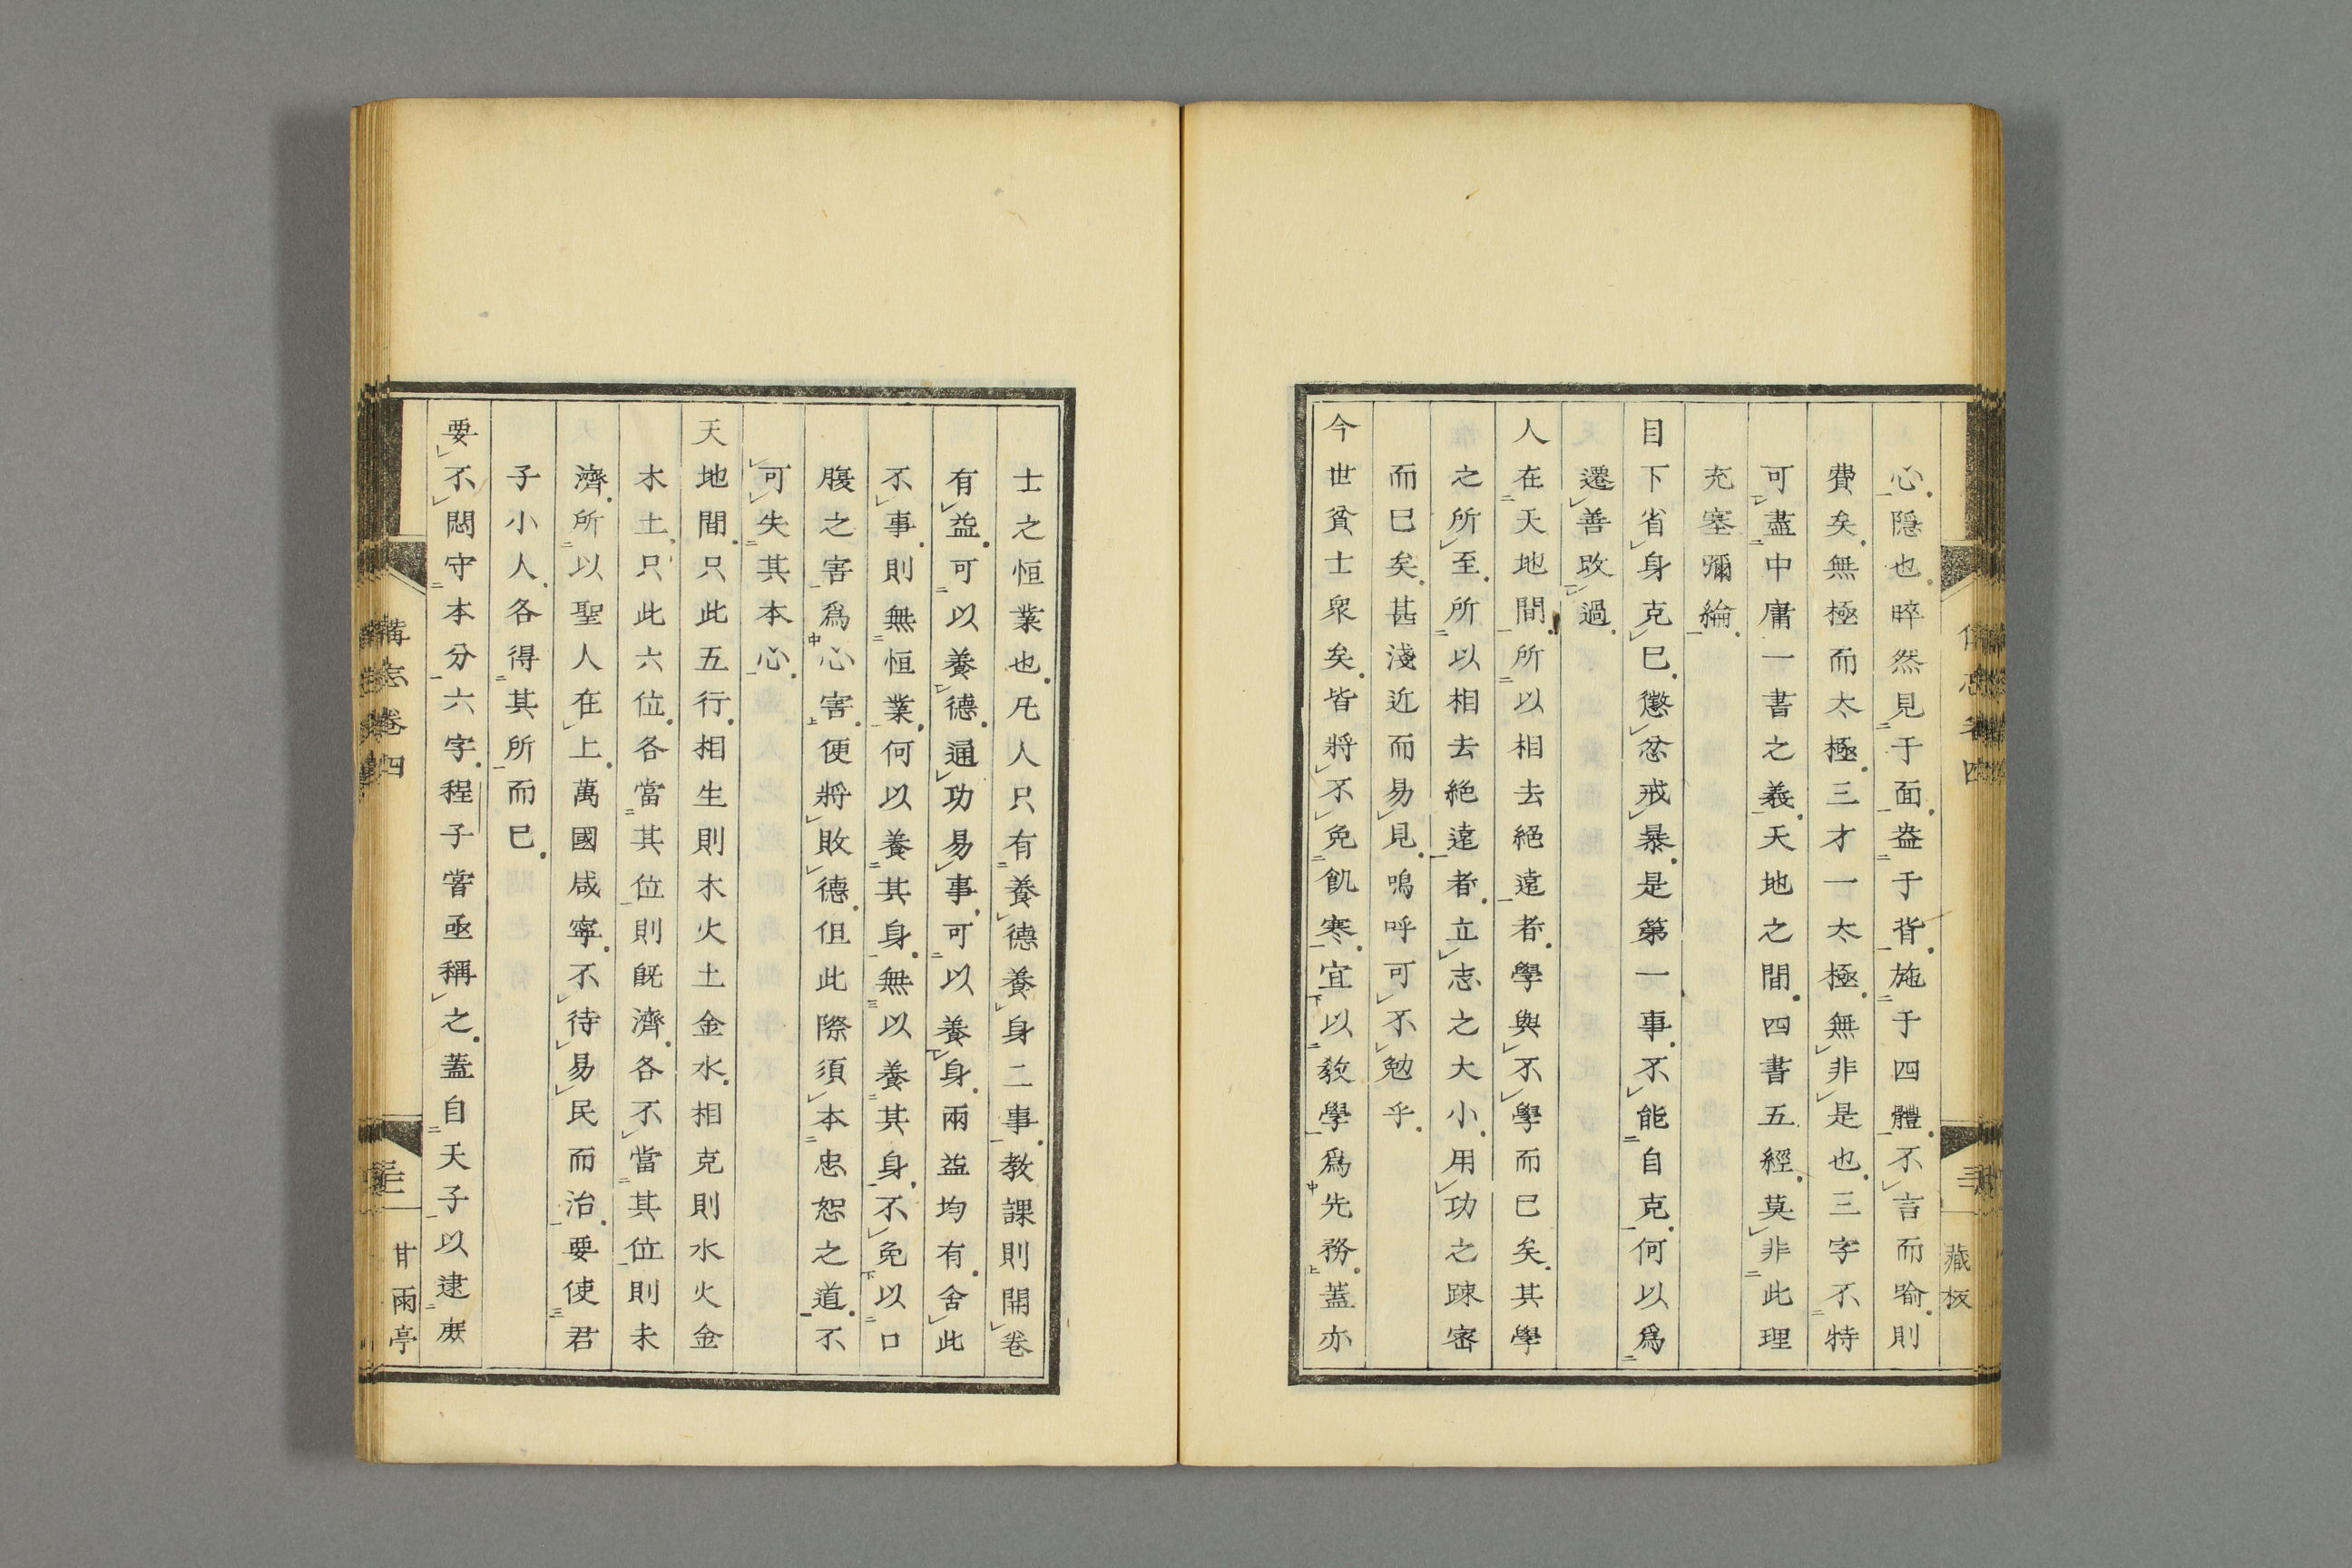 心隱也睟然見于面盎于背施于四體不言而喻則
費矣無極而太極三才一太極無非是也三字不特
可盡中庸一書之義天地之間四書五經莫非此理
充塞彌綸
目下省身克己懲忿戒暴是第一事不能自克何以爲
遷善改過
人在天地間所以相去絕遠者學與不學而已矣其學
之所至所以相去絕遠者立志之大小用功之疎密
而已矣甚淺近而易見嗚呼可不勉乎
今世貧士衆矣皆將不免飢寒宜以敎學爲先務蓋亦
藏板
士之恒業也凡人只有養德養身二事教課則開卷
有益可以養德通功易事可以養身兩益均有舍此
不事則無恒業何以養其身無以養其身不免以口
腹之害爲心害便將敗德但此際須本忠恕之道不
可失其本心
天地間只此五行相生則木火土金水相克則水火金
木土只此六位各當其位則旣濟各不當其位則未
濟所以聖人在上萬國咸寧不待易民而治要使君
子小人各得其所而已
要不悶守本分六字程子嘗亟稱之蓋自天子以逮庶
備忘卷四
甘雨亭